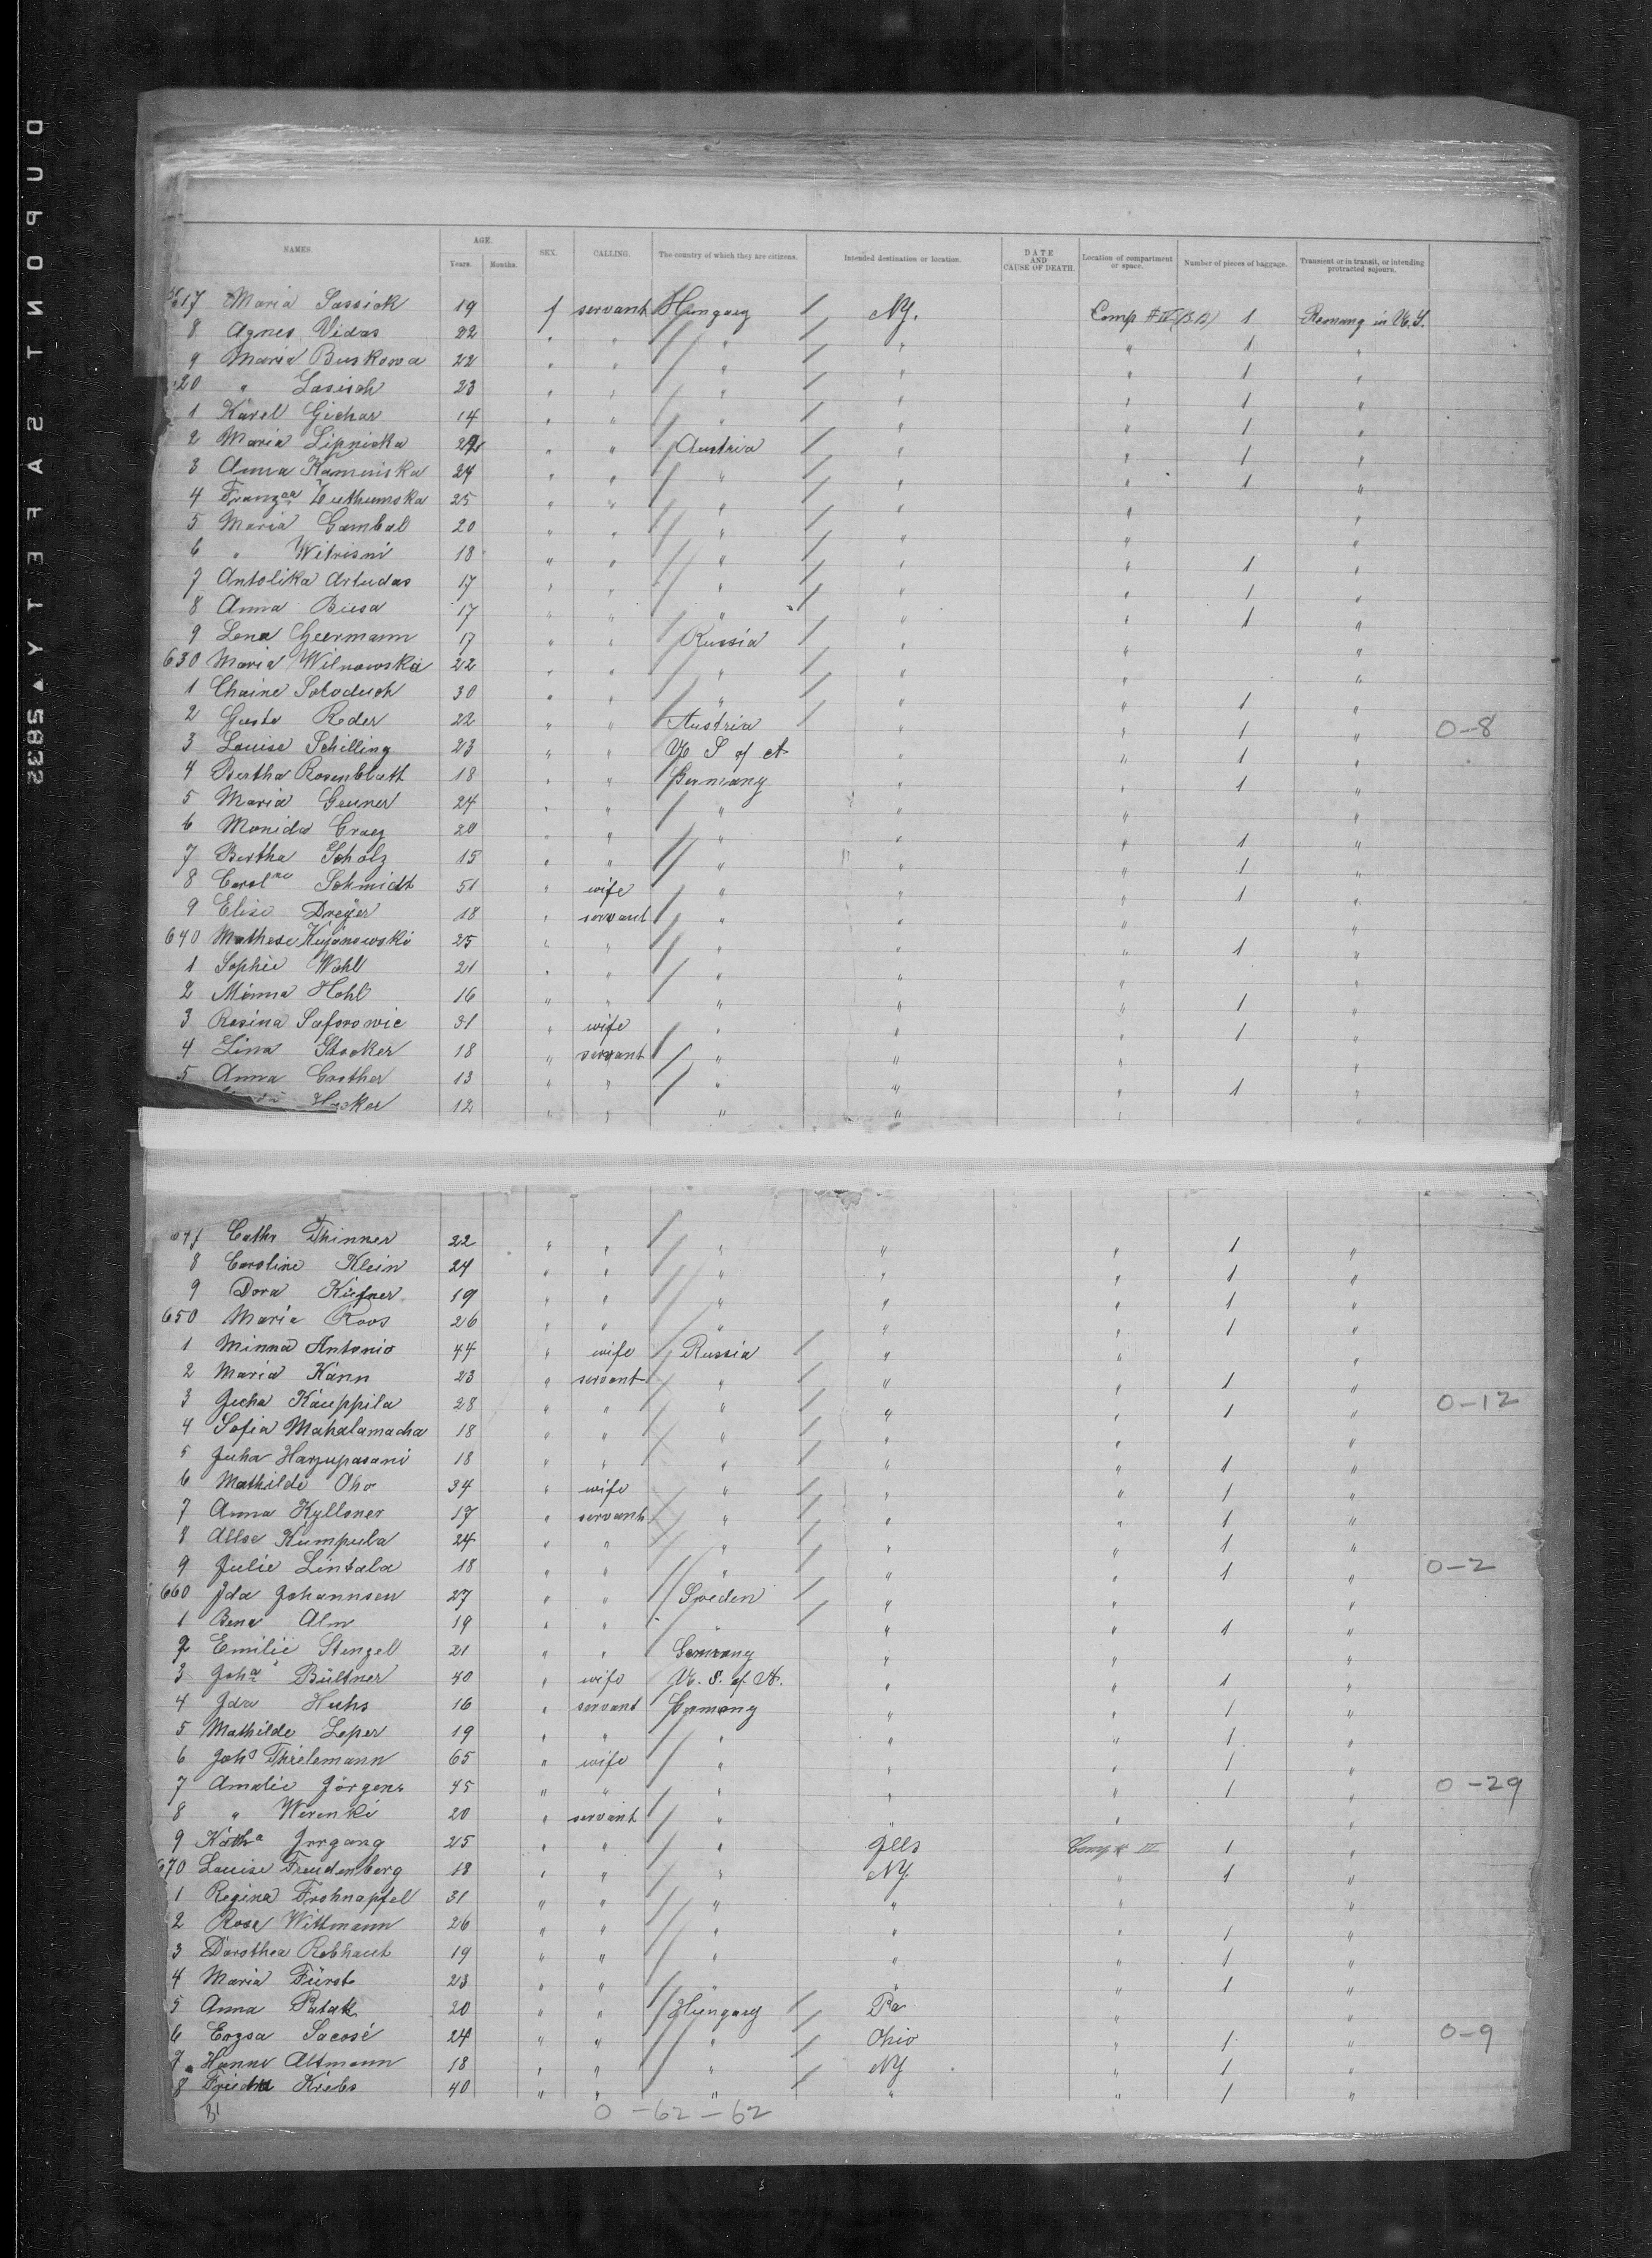 DUPONT SAFETY ▲ 5835
NAMES. AGE. SEX. CALLING. The country of which they are citizens. Intended destination or location. DATE AND CAUSE OF DEATH. Location of compartment or space. Number of pieces of baggage. Transient or in transit, or intending protracted sojourn.
Years. Months.
617 Maria Sassick 19 f servant Hungary / NY. Comp 1 in U.S.
8 Agnes Vidas 22 " " " " " 1 "
9 Maria Buskowa 22 " " " " " 1 "
20 " Lasisch 23 " " " " " 1 "
1 Karel Gichar 14 " " " " " 1 "
2 Maria Lipnicka " " Austria " " 1 "
3 Anna Kaminiska 24 " " " " " 1 "
4 25 " " " " " "
5 Maria Gambal 20 " " " " " "
6 " Witrisni 18 " " " " " 1 "
7 Antolika Artudas 17 " " " " " 1 "
8 Anna Biesa 17 " " " " " 1 "
9 Lena Geermann 17 " " Russia " " "
630 Maria Wilnowska 22 " " " " " "
1 Chaine Soloduch 30 " " " " " 1 "
2 Guste Reder 22 " " Austria " " 1 " 0-8
3 Louise Schilling 23 " " U S of A " " 1 "
4 Bertha Rosenblath 18 " " Germany " " 1 "
5 Maria Geuner 24 " " " " " "
6 Monida Graez 20 " " " " " 1 "
7 Bertha Scholz 15 " " " " " 1 "
8 Carolne Schmidt 51 " wife " " " 1 "
9 Elise Dreyer 18 " servant " " " "
640 Mathese Kujanowski 25 " " " " " 1 "
1 Sophie Wahl 21 " " " " " "
2 Minna Hohl 16 " " " " " 1 "
3 Rosina Saforowic 31 " wife " " " 1 "
4 Lina Stocker 18 " servant " " " "
5 Anna Goether 13 " " " " " 1 "
Hacker 12 " " " " " "
647 Cathr Thinner 22 " " " " " 1 "
8 Caroline Klein 24 " " " " " 1 "
9 Dora Kiefner 19 " " " " " 1 "
650 Maria Roos 26 " " " " " 1 "
1 Minna Antonio 44 " wife Russia " " "
2 Maria Kann 23 " servant " " " 1 "
3 Juha Kauppila 28 " " " " " 1 " 0-12
4 Sofia Mahalamacha 18 " " " " " "
5 Juha Harjupasani 18 " " " " " 1 "
6 Mathilde Oho 34 " wife " " " 1 "
7 Anna Kylloner 17 " servant " " " 1 "
8 Allse Kumpula 24 " " " " " 1 "
9 Julie Lintala 18 " " " " " 1 " 0-2
660 Ida Johannsen 27 " " Sweden " " "
1 Bena Alm 19 " " " " " 1 "
2 Emilie Stengel 21 " " Germany " " "
3 Joha Bültner 40 " wife U. S. of A. " " 1 "
4 Ida Huhs 16 " servant Germany " " 1 "
5 Mathilde Leper 19 " " " " " 1 "
6 Johs Thielemann 65 " wife " " " 1 "
7 Amalie Jörgens 45 " " " " " 1 " 0-29
8 " Werenki 20 " servant " " " "
9 Katha Irrgang 25 " " " Jlls Comp # III 1 "
670 Louise Freudenberg 18 " " " NY. " 1 "
1 Regina Frohnapfel 31 " " " " " "
2 Rosa Wittmann 26 " " " " " 1 "
3 Dorothea Rebhaut 19 " " " " " 1 "
4 Maria Fürst 23 " " " " " 1 "
5 Anna Patak 20 " " Hungary Pa " "
6 Erzsa Sacosé 24 " " " Ohio " 1 " 0-9
7 Hanni Altmann 18 " " " NY " 1 "
8 Krebs 40 " " " " " 1 "
0 - 62 - 62